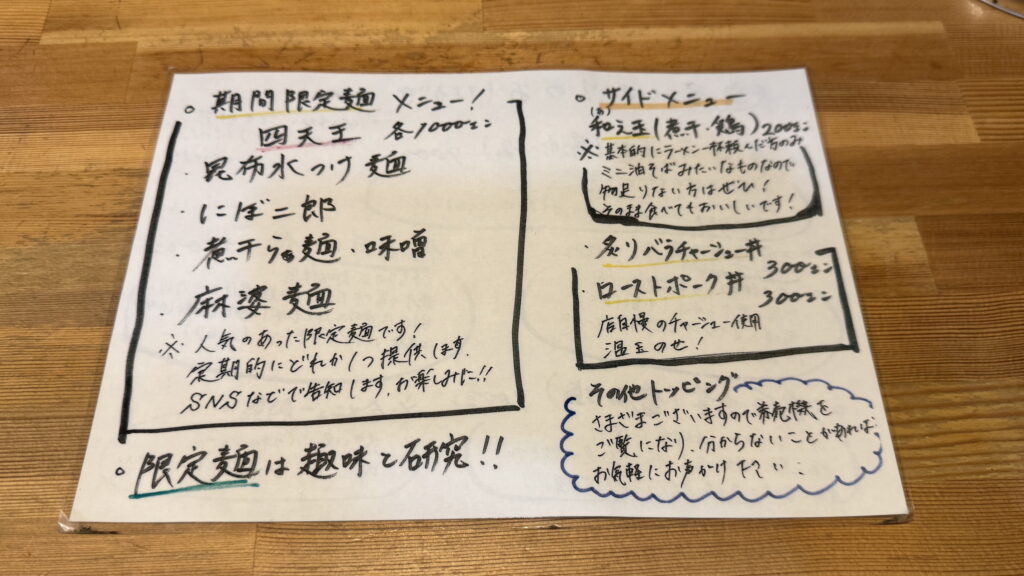 。期間限定麺 メニュー!
四天王 各1000エン
・昆布水つけ麺
・にぼ二郎
・煮干らぁ麺・味噌
・麻婆麺
※人気のあった限定麺です!
定期的にどれか1つ提供します。
SNSなどで告知します。お楽しみに!!
。限定麺は趣味と研究!!
。サイドメニュー
和え玉(煮干・鶏)200エン
※基本的にラーメン一杯頼んだ方のみ
ミニ油そばみたいなものなので
物足りない方はぜひ!
そのまま食べてもおいしいです!
・炙りバラチャーシュー丼
300エン
・ローストポーク丼
300エン
店自慢のチャーシュー使用
温玉のせ!
その他トッピング
さまざまございますので券売機を
ご覧になり、分からないことがあれば、
お気軽にお声かけ下さい。